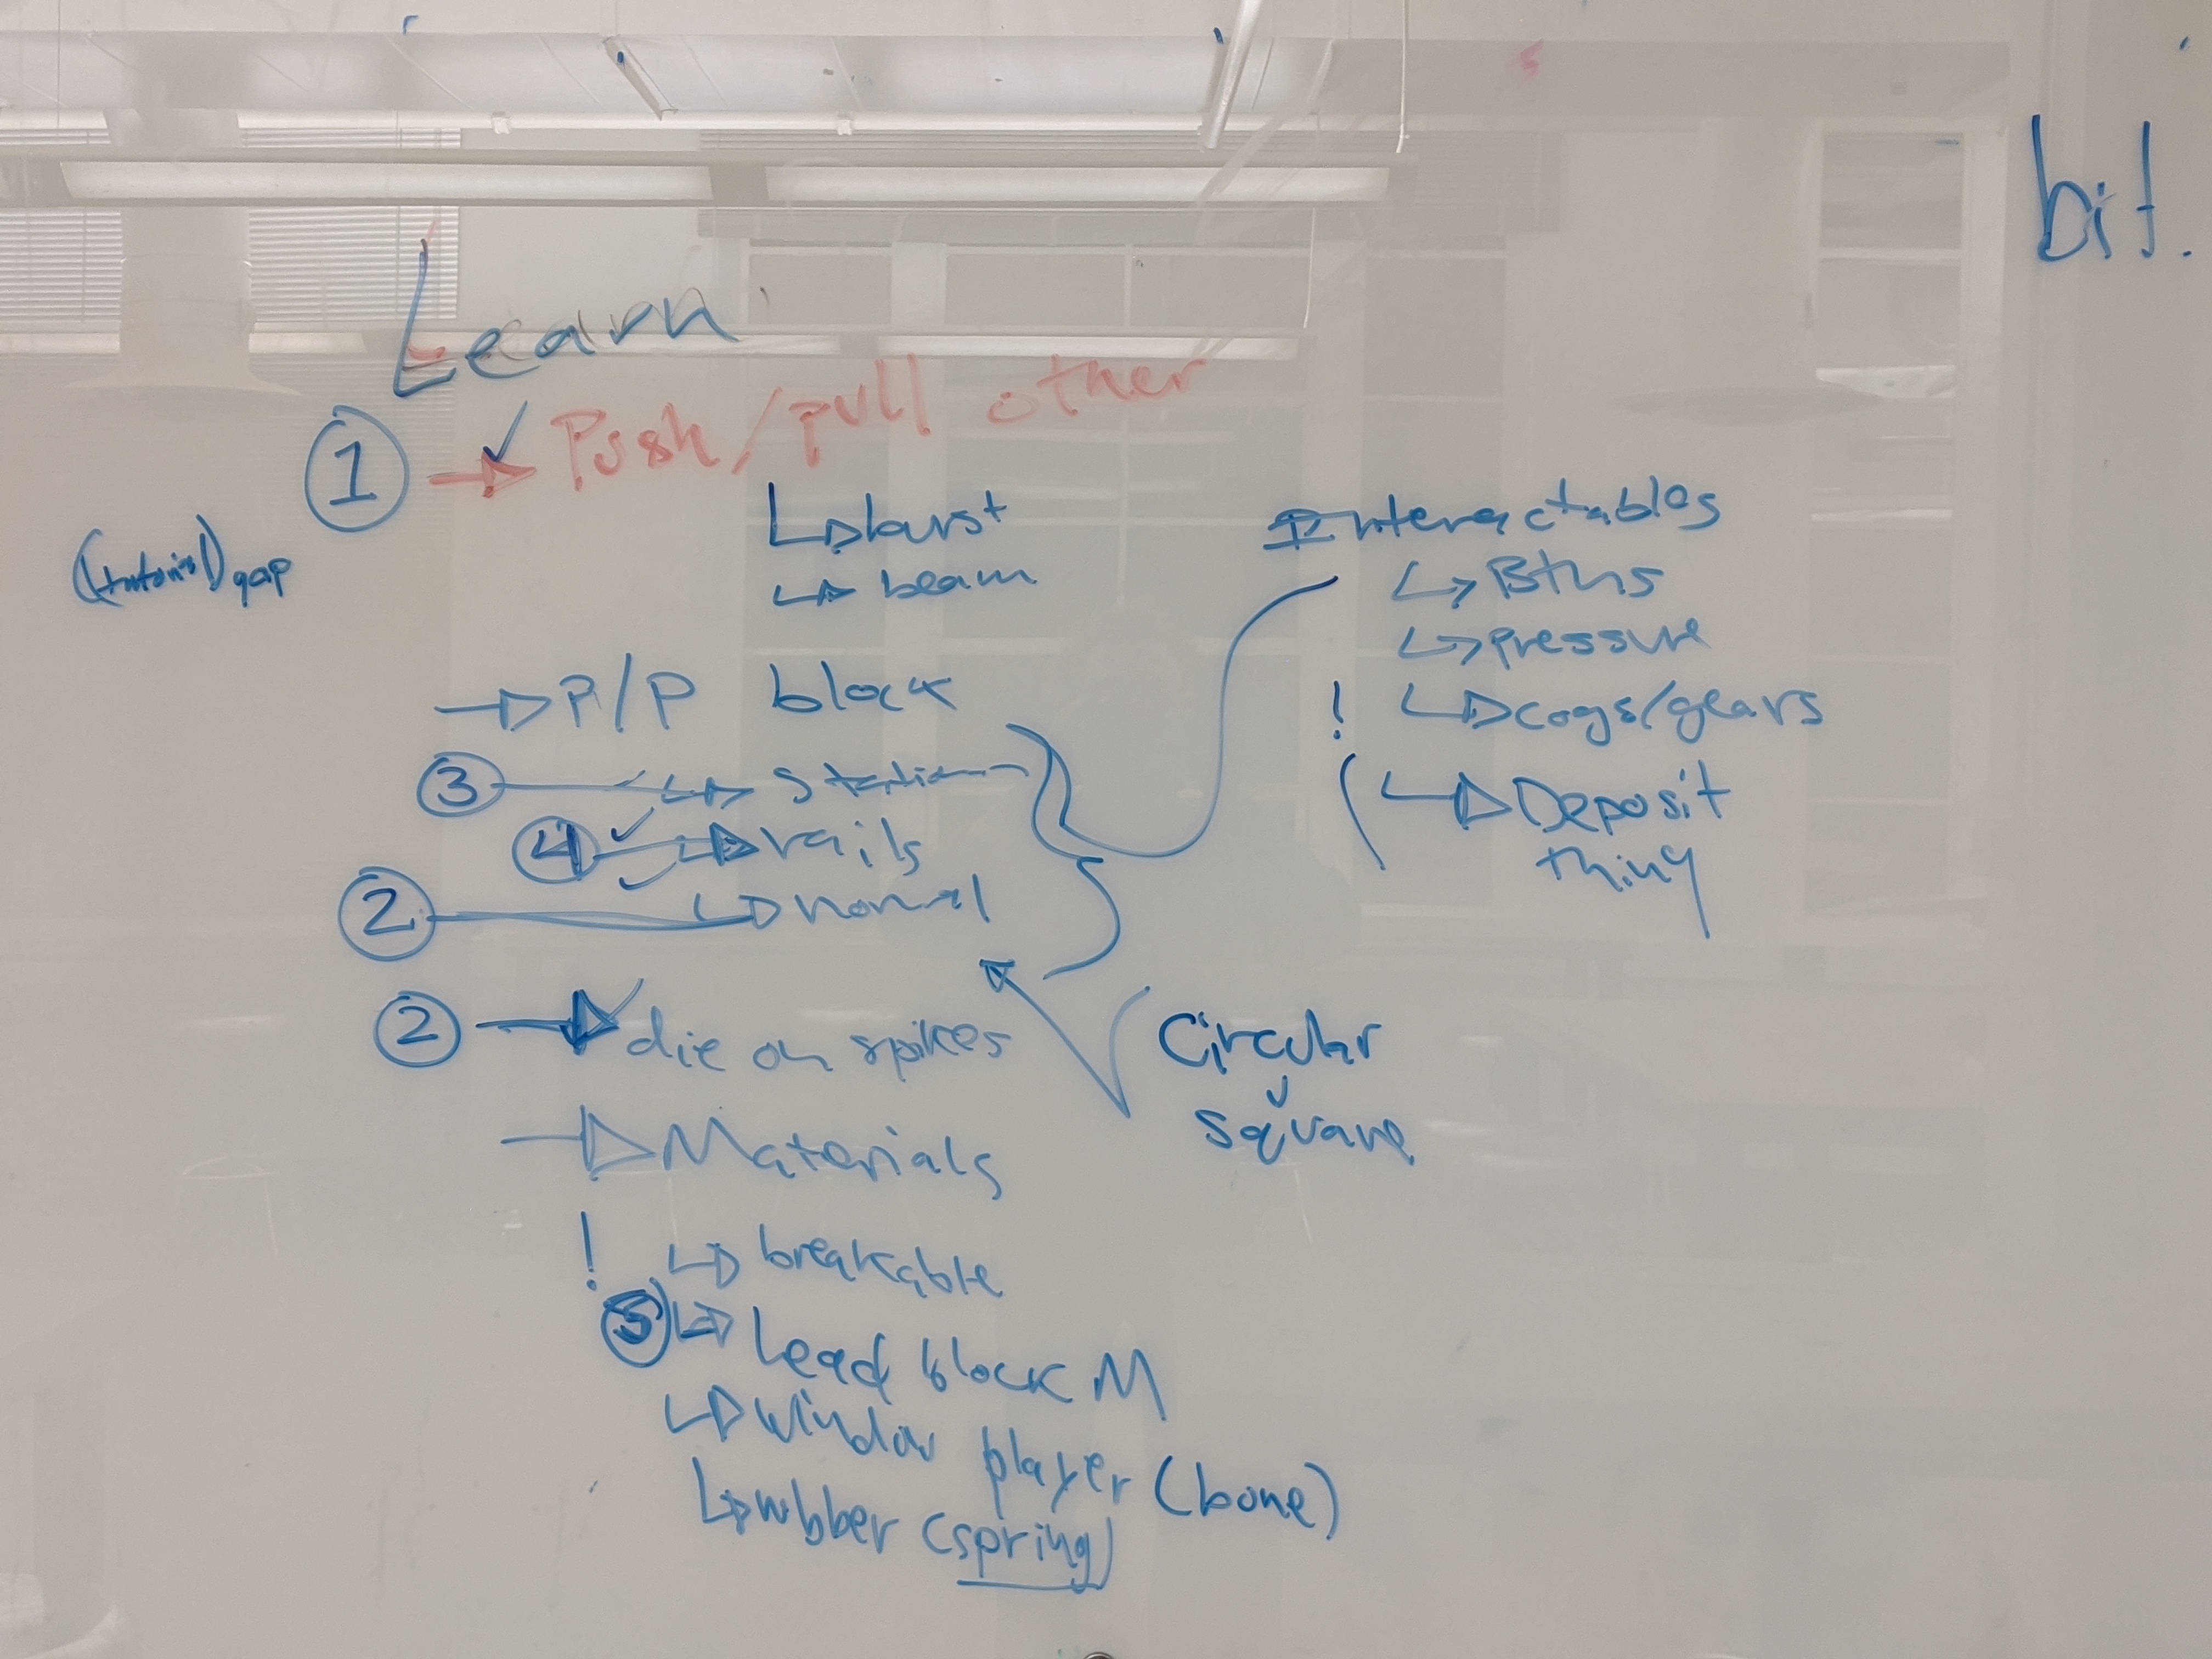 bit.
Learn
① → Push/pull other
↳ burst
↳ beam
(tutorial) gap
→ P/P block
③ ↳ static
④ ↳ rails
② ↳ normal
② → die on spikes
→ Materials
! ↳ breakable
⑤ ↳ Lead block M
↳ window player (bone)
↳ rubber (spring)
Interactables
↳ Btns
↳ pressure
! ↳ cogs/gears
( ↳ Deposit
thing
Circular
square